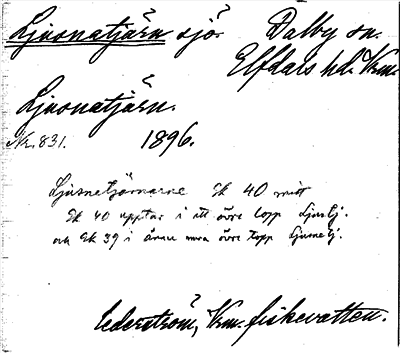 Ljusnatjärn sjö. Dalby sn.
Elfdals hd. Vrm.
Ljusnatjärn.
Nr. 831. 1896.
Ljusnetjärnarne Ek 40 mitt
Ek 40 upptar i ett övre lopp Ljustj.
och Ek 39 i ännu övre topp Ljusnetj.
Cederström, Vrm. fiskevatten.